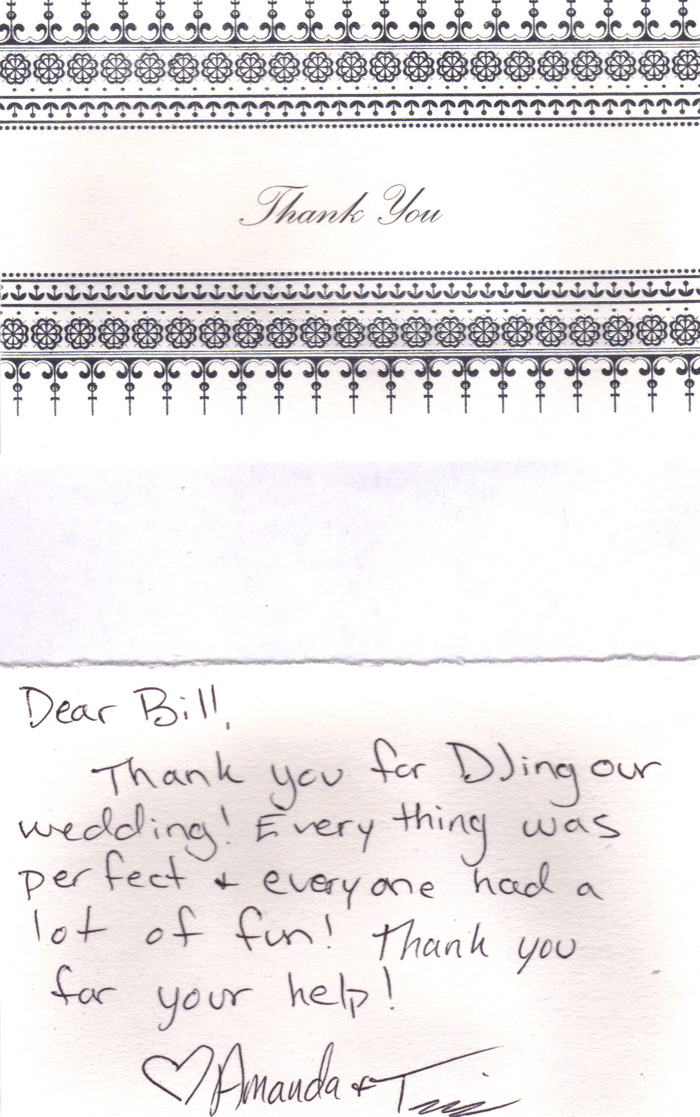 Thank You
Dear Bill,
Thank you for DJing our
wedding! Every thing was
perfect + everyone had a
lot of fun! Thank you
for your help!
♡ Amanda +